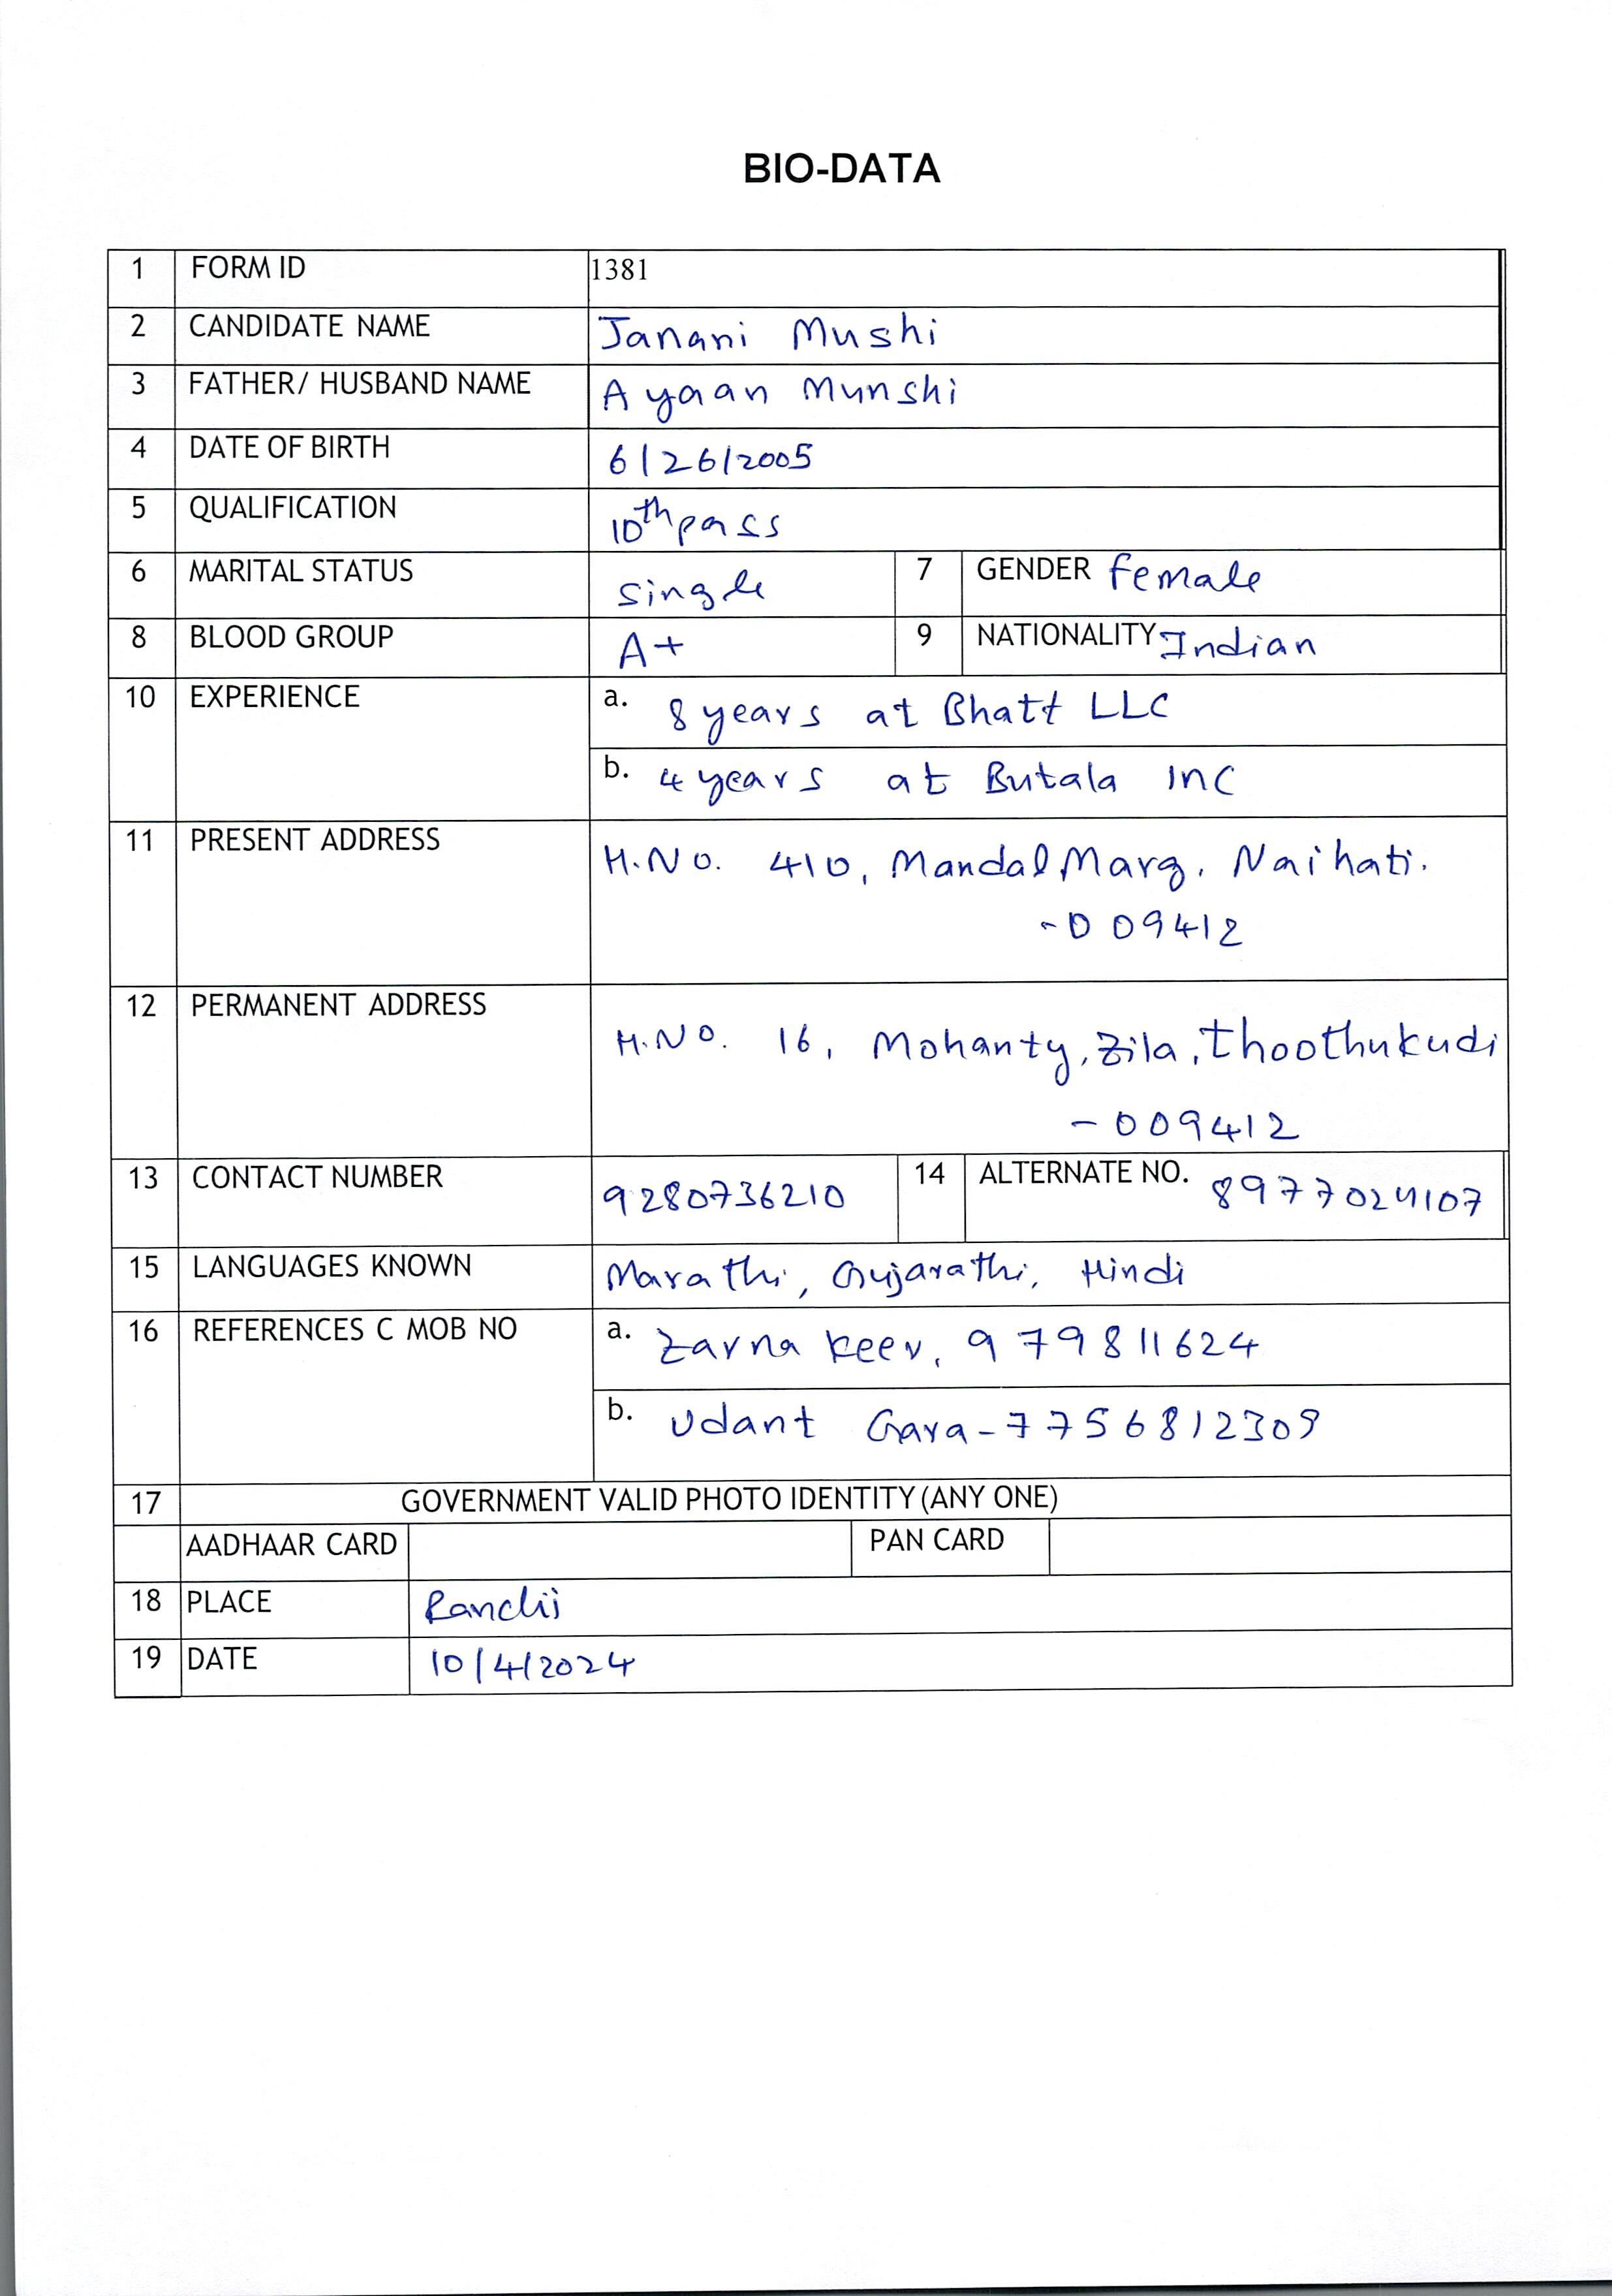 BIO-DATA
1 FORM ID 1381
2 CANDIDATE NAME Janani Mushi
3 FATHER/ HUSBAND NAME Ayaan Munshi
4 DATE OF BIRTH 6/26/2005
5 QUALIFICATION 10th pass
6 MARITAL STATUS single 7 GENDER female
8 BLOOD GROUP A+ 9 NATIONALITY Indian
10 EXPERIENCE a. 8 years at Bhatt LLC
b. 4 years at Butala INC
11 PRESENT ADDRESS H.No. 410, Mandal Marg, Naihati.
-009412
12 PERMANENT ADDRESS H.NO. 16, Mohanty, Zila, Thoothukudi
- 009412
13 CONTACT NUMBER 9280736210 14 ALTERNATE NO. 8977024107
15 LANGUAGES KNOWN Marathi, Gujarathi, Hindi
16 REFERENCES C MOB NO a. Zarna keer, 979811624
b. Udant Gara - 7756812309
17 GOVERNMENT VALID PHOTO IDENTITY (ANY ONE)
AADHAAR CARD PAN CARD
18 PLACE Ranchi
19 DATE 10/4/2024